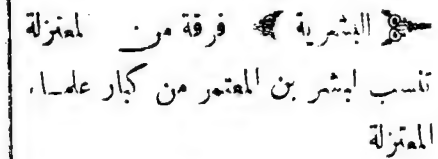 البشرية فرقة من لمعتزلة
تنسب لبشر بن المعتمر من كبار علماء
المعتزلة